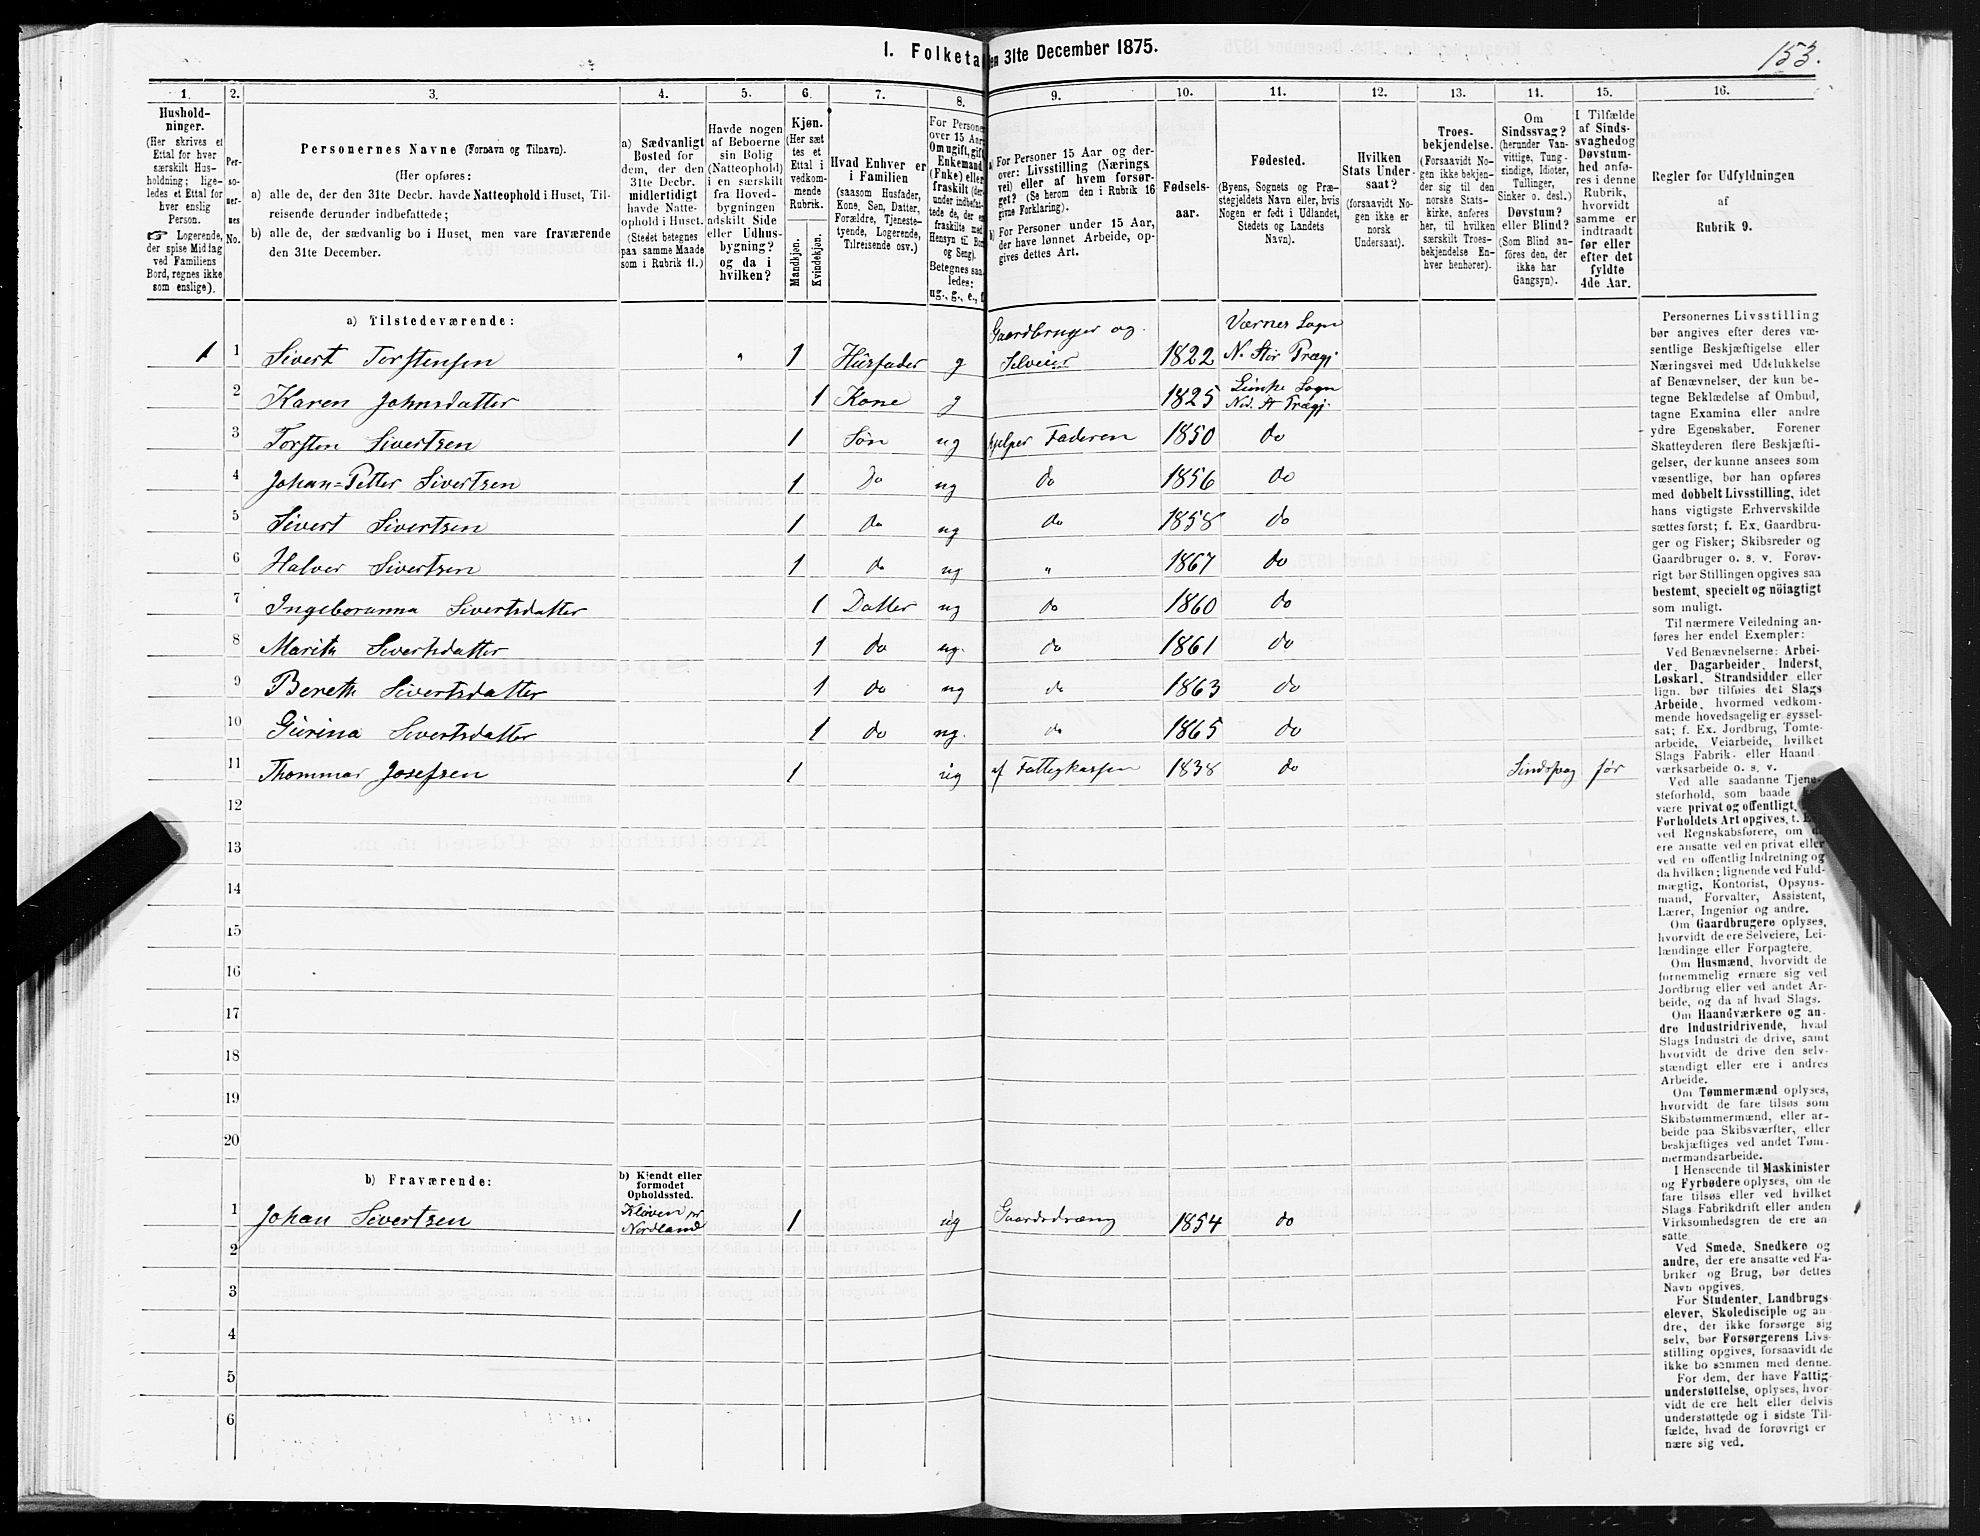 I. Folketal den 31te December 1875.
153.
1. 2. 3. 4. 5. 6. 7. 8. 9. 10. 11. 12. 13. 14. 15. 16.
Hushold-
ninger.
(Her skrives et
Ettal for hver
særskilt Hus-
holdning; lige-
ledes et Ettal for
hver enslig
Person.
☞ Logerende,
der spise Middag
ved Familiens
Bord, regnes ikke
som enslige).
Per-
so-
ner-
nes
No.
Personernes Navne (Fornavn og Tilnavn).
(Her opføres:
a) alle de, der den 31te Decbr. havde Natteophold i Huset, Til-
reisende derunder indbefattede;
b) alle de, der sædvanlig bo i Huset, men vare fraværende
den 31te December.
a) Sædvanligt
Bosted for
dem, der den
31te Decbr.
midlertidigt
havde Natte-
ophold i Huset.
(Stedet betegnes
paa samme Maade
som i Rubrik 11.)
Havde nogen
af Beboerne
sin Bolig
(Natteophold)
i en særskilt
fra Hoved-
bygningen
adskilt Side
eller Udhus-
bygning?
og da i
hvilken?
Kjøn.
(Her sæt
tes et
Ettal i
vedkom-
mende
Rubrik.
Mandkjøn.
Kvindekjøn.
Hvad Enhver er
i Familien
(saasom Husfader,
Kone, Søn, Datter,
Forældre, Tjeneste-
tyende, Logerende,
Tilreisende osv.)
For Personer
over 15 Aar:
Om ugift, gift,
Enkemand
(Enke) eller
fraskilt (der-
under indbefat-
tede de, der ere
fraskilte med
Hensyn til Bord
og Seng).
Betegnes saa-
ledes:
ug., g., e., f.
a) For Personer 15 Aar og der-
over: Livsstilling (Nærings
vei) eller af hvem forsør-
get? (Se herom den i Rubrik 16
givne Forklaring).
b) For Personer under 15 Aar,
der have lønnet Arbeide, op-
gives dettes Art.
Fødsels-
aar.
Fødested.
(Byens, Sognets og Præ-
stegjeldets Navn eller, hvis
Nogen er født i Udlandet,
Stedets og Landets
Navn).
Hvilken
Stats Under-
saat?
(forsaavidt No-
gen ikke er
norsk
Undersaat).
Troes-
bekjendelse.
(Forsaavidt No-
gen ikke bekjen-
der sig til den
norske Stats-
kirke, anføres
her, til hvilken
særskilt Troes-
bekjendelse En-
hver henhører).
Om
Sindssvag?
(herunder Van-
vittige, Tung-
sindige, Idioter,
Tullinger,
Sinker o. desl.)
Døvstum?
eller Blind?
(Som Blind an-
føres den, der
ikke har
Gangsyn).
I Tilfælde
af Sinds-
svaghed og
Døvstum-
hed anfø-
res i denne
Rubrik,
hvorvidt
samme er
indtraadt
før eller
efter det
fyldte
4de Aar.
Regler for Udfyldningen
af
Rubrik 9.
a) Tilstedeværende:
1 1 Sivert Torstensen 1 Husfader g Gaardbruger og Selveier 1822 Værnes Sogn N. Stør Prægj
2 Karen Johnsdatter 1 Kone g 1825 Leinke Sogn Ned. St Prægj.
3 Torsten Sivertsen 1 Søn ug hjelper Faderen 1850 do
4 Johan=Petter Sivertsen 1 Do ug do 1856 do
5 Sivert Sivertsen 1 do ug do 1858 do
6 Halver Sivertsen 1 do ug " 1867 do
7 Ingeboranna Sivertsdatter 1 Datter ug do 1860 do
8 Marith Sivertsdatter 1 do ug. do 1861 do
9 Bereth Sivertsdatter 1 do ug do 1863 do
10 Gurina Sivertsdatter 1 do ug. do 1865 do
11 Thommas Josefsen 1 ug af Fattigkassen 1838 do Sindsvag før
12
13
14
15
16
17
18
19
20
b) Fraværende:
b) Kjendt eller
formodet
Opholdssted.
1 Johan Sivertsen Kløven pr Nordland 1 ug Gaardsdræng 1854 do
2
3
4
5
6
Personernes Livsstilling
bør angives efter deres væ-
sentlige Beskjæftigelse eller
Næringsvei med Udelukkelse
af Benævnelser, der kun be-
tegne Beklædelse af Ombud,
tagne Examina eller andre
ydre Egenskaber. Forener
Skatteyderen flere Beskjæfti-
gelser, der kunne ansees som
væsentlige, bør han opføres
med dobbelt Livsstilling, idet
hans vigtigste Erhvervskilde
sættes først; f. Ex. Gaardbru-
ger og Fisker; Skibsreder og
Gaardbruger o. s. v. Forøv-
rigt bør Stillingen opgives saa
bestemt, specielt og nöiagtigt
som muligt.
Til nærmere Veiledning an-
føres her endel Exempler:
Ved Benævnelserne: Arbei-
der, Dagarbeider, Inderst,
Løskarl, Strandsidder eller
lign. bør tilføies det Slags
Arbeide, hvormed vedkom-
mende hovedsagelig er syssel-
sat; f. Ex. Jordbrug, Tomte-
arbeide, Veiarbeide, hvilket
Slags Fabrik- eller Haand-
værksarbeide o. s. v.
Ved alle saadanne Tjene-
steforhold, som baade
være privat og offentligt,
Forholdets Art opgives, t. Ex.
ved Regnskabsførere, om de
ere ansatte ved en privat eller
ved en offentlig Indretning og
da hvilken; lignende ved Fuld-
mægtig, Kontorist, Opsyns-
mand, Forvalter, Assistent,
Lærer, Ingeniør og andre.
Om Gaardbrugere oplyses,
hvorvidt de ere Selveiere, Lei-
lændinge eller Forpagtere.
Om Husmænd, hvorvidt de
fornemmelig ernære sig ved
Jordbrug eller ved andet Ar-
beide, og da af hvad Slags.
Om Haandværkere og an-
dre Industridrivende, hvad
Slags Industri de drive, samt
hvorvidt de drive den selv-
stændigt eller ere i andres
Arbeide.
Om Tømmermænd oplyses,
hvorvidt de fare tilsøs som
Skibstømmermænd, eller ar-
beide paa Skibsværfter, eller
beskjæftiges ved andet Tøm-
mermandsarbeide.
I Henseende til Maskinister
og Fyrbødere oplyses, om de
fare tilsøs eller ved hvilket
Slags Fabrikdrift eller anden
Virksomhedsgren de ere an-
satte.
Ved Smede, Snedkere og
andre, der ere ansatte ved Fa-
briker og Brug, bør dettes
Navn opgives.
For Studenter, Landbrugs-
elever, Skoledisciple og an-
dre, der ikke forsørge sig
selv, bør Forsørgerens Livs-
stilling opgives, forsaavidt de
ikke bo sammen med denne.
For dem, der have Fattig-
understøttelse, oplyses, hvor-
vidt de ere helt eller delvis
understøttede og i sidste Til-
fælde, hvad de forøvrigt er
nære sig ved.